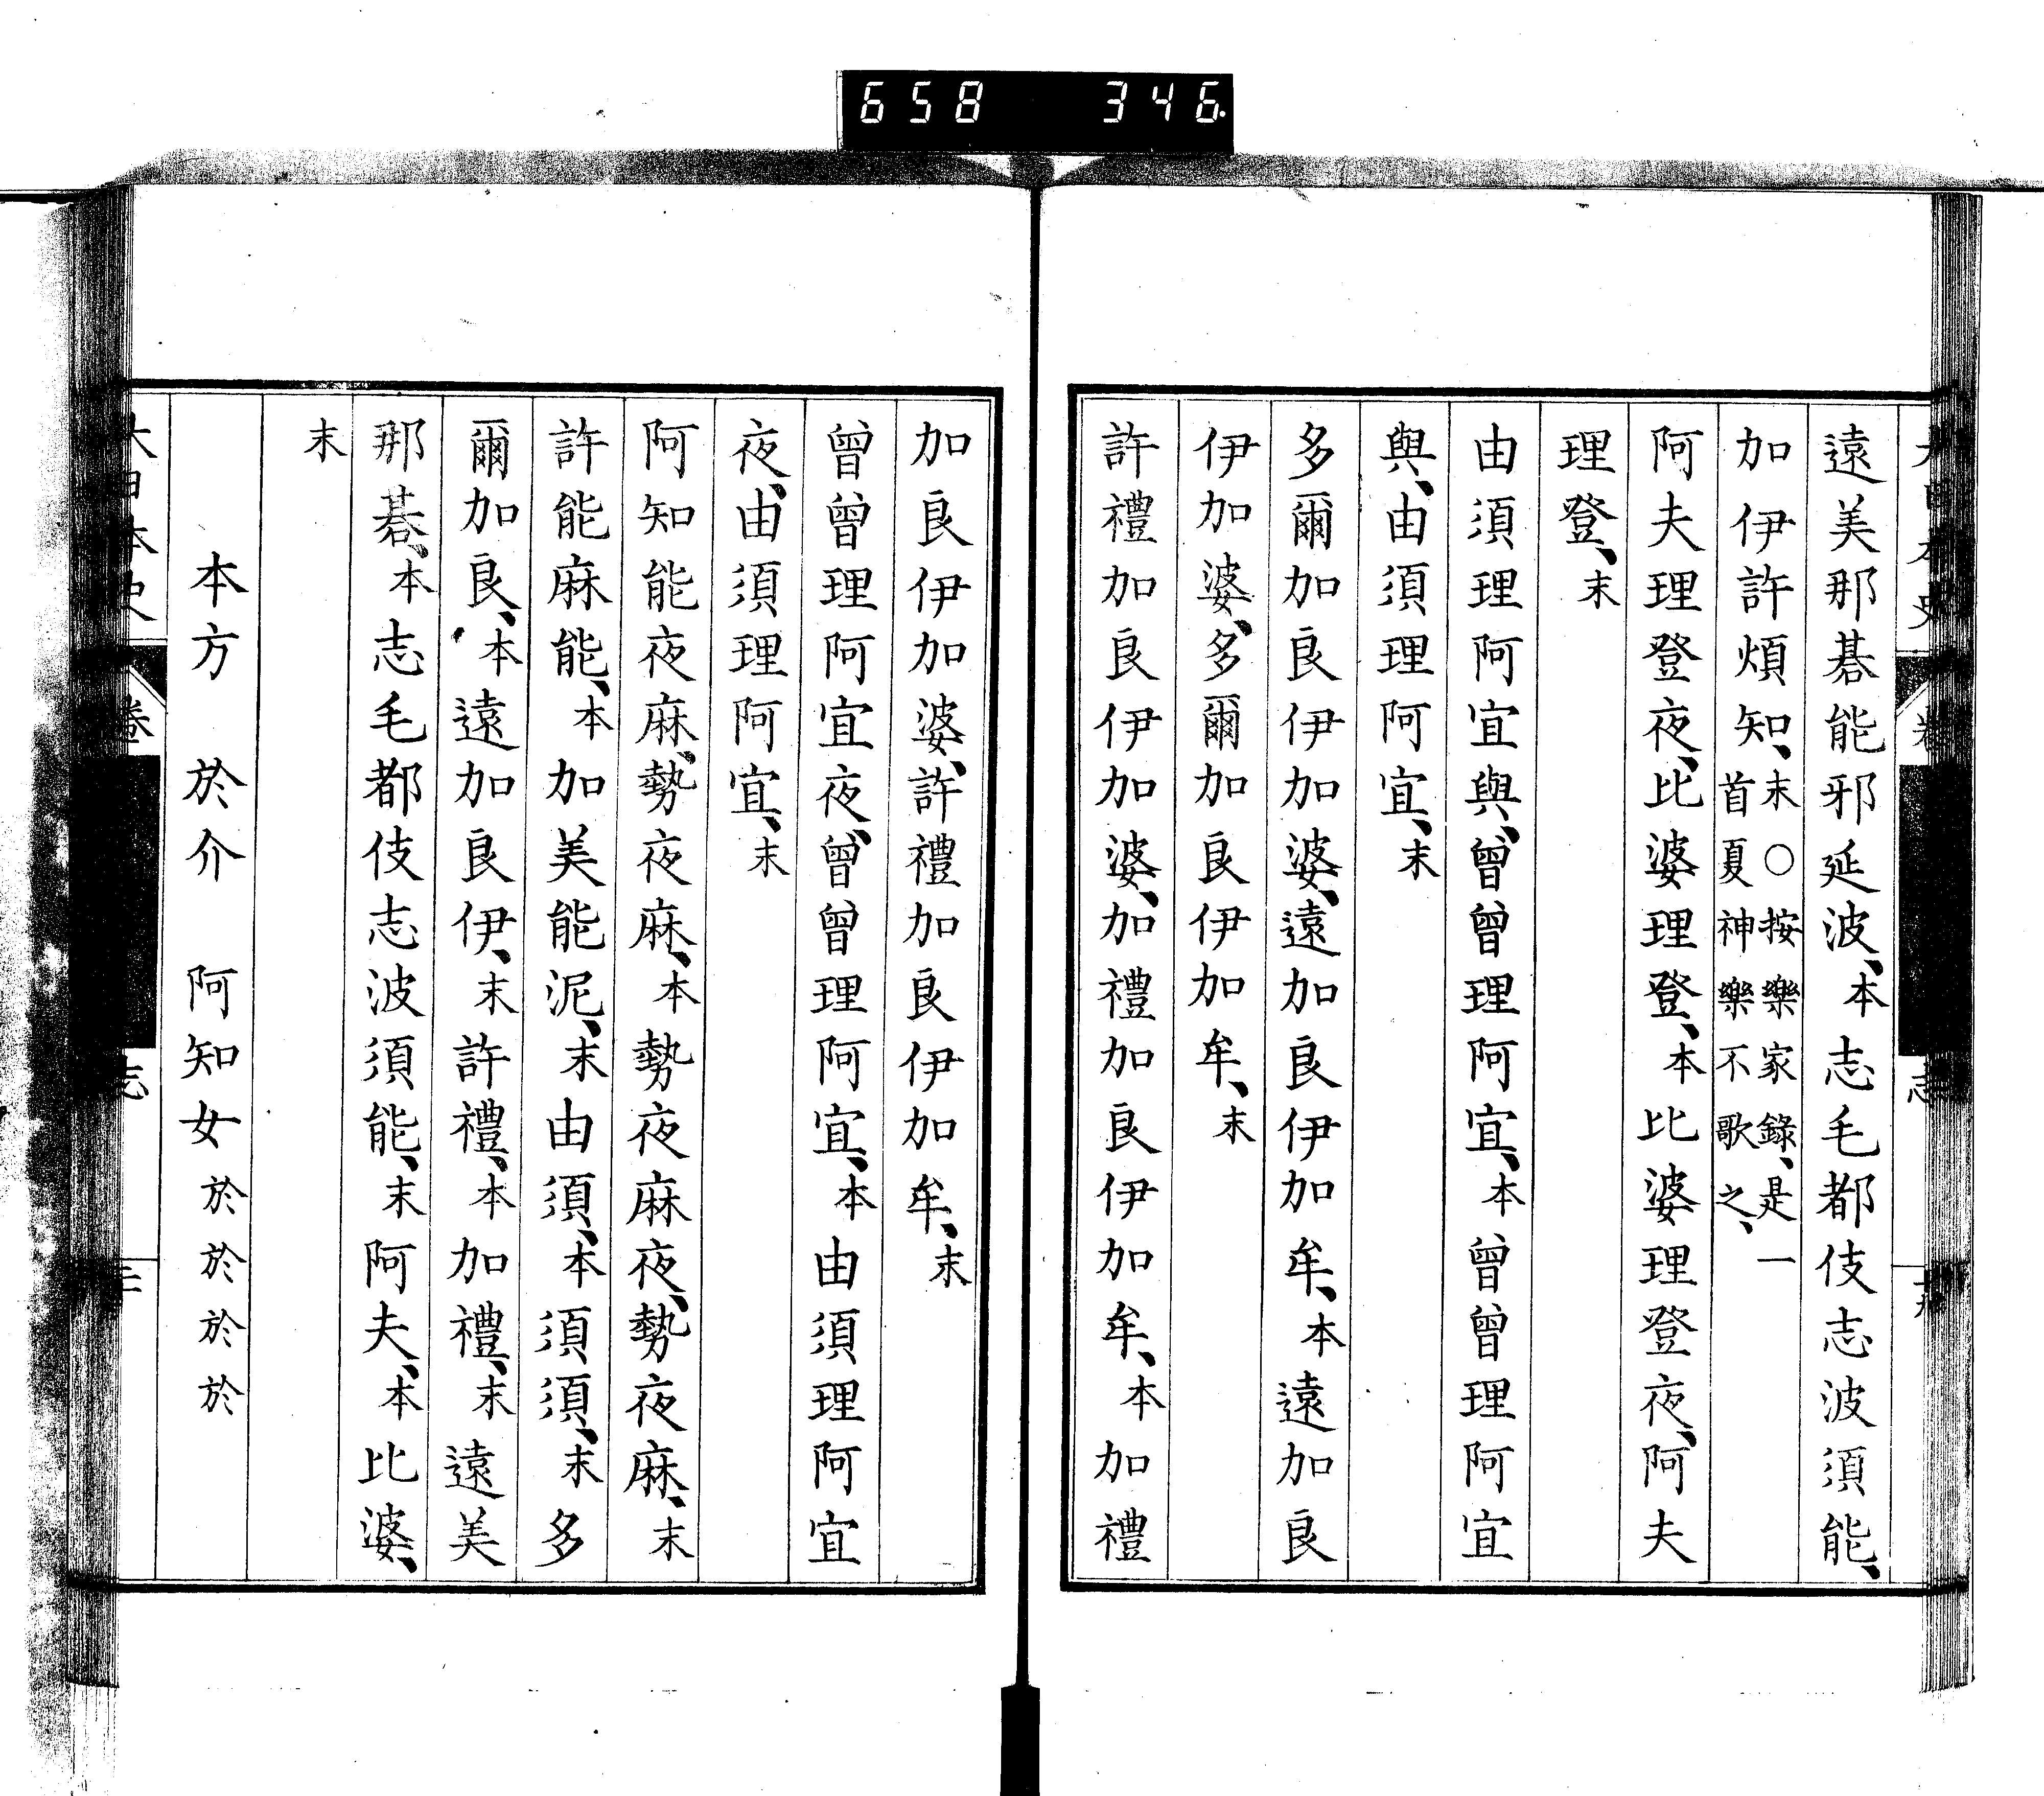 658 346
遠美那碁能邪延波、本志毛都伎志波須能、
加伊許煩知、末〇按樂家錄、是一首夏神樂不歌之、
阿夫理登夜、比婆理登、本比婆理登夜、阿夫
理登、末
由須理阿宜與、曾曾理阿宜、本曾曾理阿宜
與、由須理阿宜、末
多爾加良伊加婆、遠加良伊加牟、本遠加良
伊加婆、多爾加良伊加牟、末
許禮加良伊加婆、加禮加良伊加牟、本加禮
加良伊加婆、許禮加良伊加牟、末
曾曾理阿宜夜、曾曾理阿宜、本由須理阿宜
夜、由須理阿宜、末
阿知能夜麻、勢夜麻、本勢夜麻夜、勢夜麻、末
許能麻能、本加美能泥、末由須、本須須、末多
爾加良、本遠加良伊、末許禮、本加禮、末遠美
那碁、本志毛都伎志波須能、末阿夫、本比婆、
末
本方 於介 阿知女於於於於
大日本史 卷 志